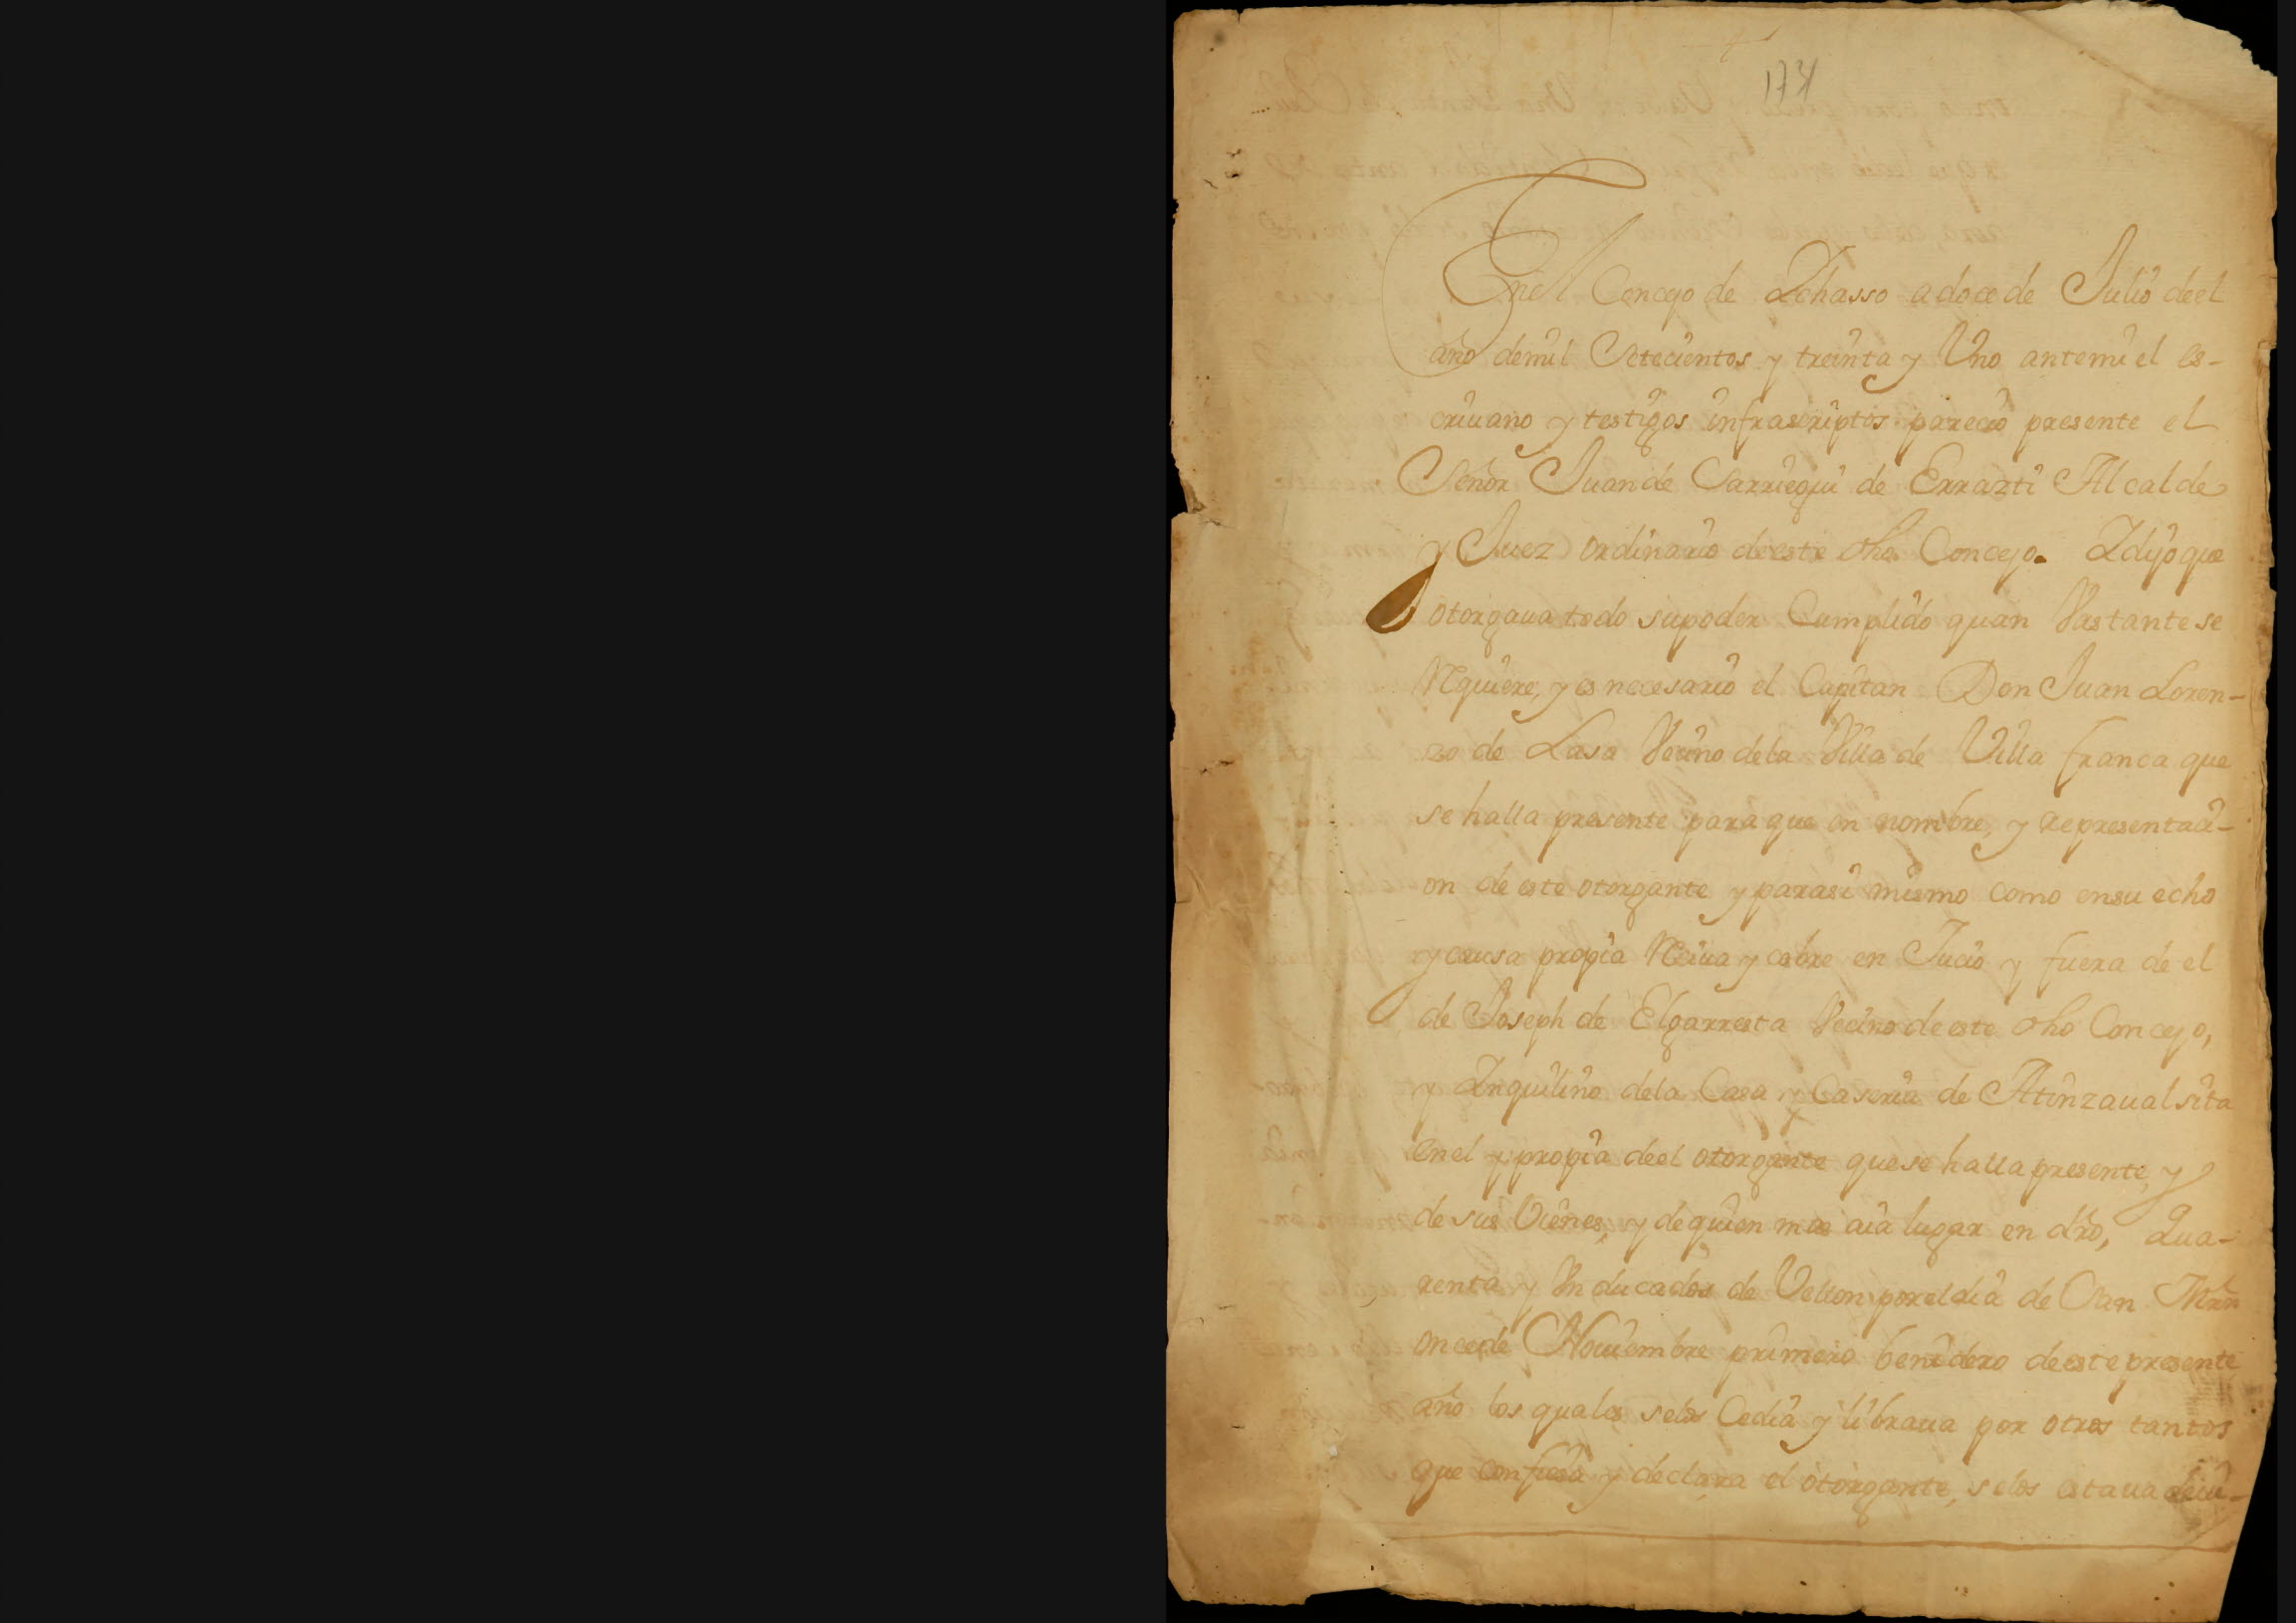 1731
En el Concejo de Ychasso a doce de Julio de el
año de mil Setecientos y treinta y Uno ante mi el es-
criuano y testigos infrascriptos parecio presente el
Señor Juan de Sarriegui de Errazti Alcalde
y Juez ordinario de este dho Concejo. Y dijo que
otorgaua todo su poder Cumplido quan Vastante se
Requiere, y es necesario el Capitan Don Juan Loren-
zo de Lasa Vecino de la Villa de Villa franca que
se halla presente para que en nombre, y representaci-
on de este otorgante y para si mismo como en su echo
y causa propia Reciua y cobre en Jucio y fuera de el
de Joseph de Elgarresta Vecino de este dho Concejo,
y Inquilino de la Casa y Caseria de Atinzaual sita
en el y propia de el otorgante que se halla presente, y
de sus Vienes, y de quien mas aia lugar en dro, Qua-
renta y Un ducados de Vellon por el dia de San Mrn
once de Nouiembre primero benidero de este presente
año los quales se los Cedia y libraua por otros tantos
que confiesa y declara el otorgante, se los estaua deui-